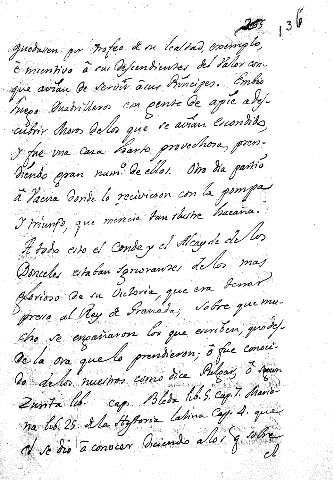 136
quedasen por trofeo de su lealtad, exemplo,
è incentivo â sus Descendientes del Valor con
que avian de servir âsus Principes. Embio
luego Quadrilleros con gente de apie ades-
cubrir Moros de los que se avian Escondido,
y fue una caza harto provechosa, pren-
diendo gran num.º de ellos. Otro dia partio
â Vaena donde lo recivieron con la pompa
y triunfo, que merecia tan ilustre hazaña.
A todo esto el Conde y el Alcayde de los
Donceles estaban ignorantes de lo mas
glorioso de su Victoria que era tener
preso al Rey de Granada; sobre que mu-
cho se engañaron los que escriben, que des-
de la ora que lo prendieron, ô fue conoci-
do de los nuestros como dice Pulgar, ô segun
Zurita lib. cap. Bleda lib. 5. cap. 7. Maria-
na lib. 25. de la Hystoria latina cap. 4. que
el se dio â conocer diciendo alos q sobre
el